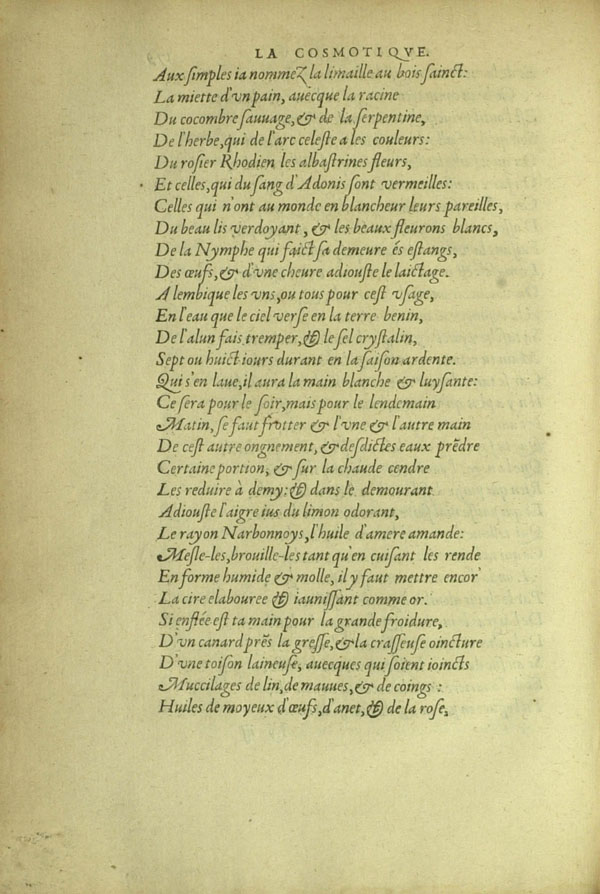 LA COSMOTIQVE.
Aux ſimples ia nommeZ la limaille au bois ſainct:
La miette d'vn pain, auècque la racine
Du cocombre ſauuage, & de la ſerpentine,
De l'herbe, qui de l'arc celeſte a les couleurs:
Du roſier Rhodien les albaſtrines fleurs,
Et celles, qui du ſang d'Adonis ſont vermeilles:
Celles qui n'ont au monde en blancheur leurs pareilles,
Du beau lis verdoyant, & les beaux fleurons blancs,
De la Nymphe qui faict ſa demeure és eſtangs,
Des œufs, & d'vne cheure adiouſte le laictage.
Alembique les vns, ou tous pour ceſt vſage,
En l'eau que le ciel verſe en la terre benin,
De l'alun fais tremper, & le ſel cryſtalin,
Sept ou huict iours durant en la ſaiſon ardente.
Qui s'en laue, il aura la main blanche & luyſante:
Ce ſera pour le ſoir, mais pour le lendemain
Matin, ſe faut frotter & l'vne & l'autre main
De ceſt autre ongnement, & deſdictes eaux prẽdre
Certaine portion, & ſur la chaude cendre
Les reduire à demy: & dans le demourant
Adiouſte l'aigre ius du limon odorant,
Le rayon Narbonnoys, l'huile d'amere amande:
Meſle-les, brouille-les tant qu'en cuiſant les rende
En forme humide & molle, il y faut mettre encor'
La cire elabouree & iauniſſant comme or.
Si enflée eſt ta main pour la grande froidure,
D'vn canard prẽs la greſſe, & la craſſeuſe oincture
D'vne toiſon laineuſe, auecques qui ſoient ioincts
Muccilages de lin, de mauues, & de coings:
Huiles de moyeux d'œufs, d'anet, & de la roſe,